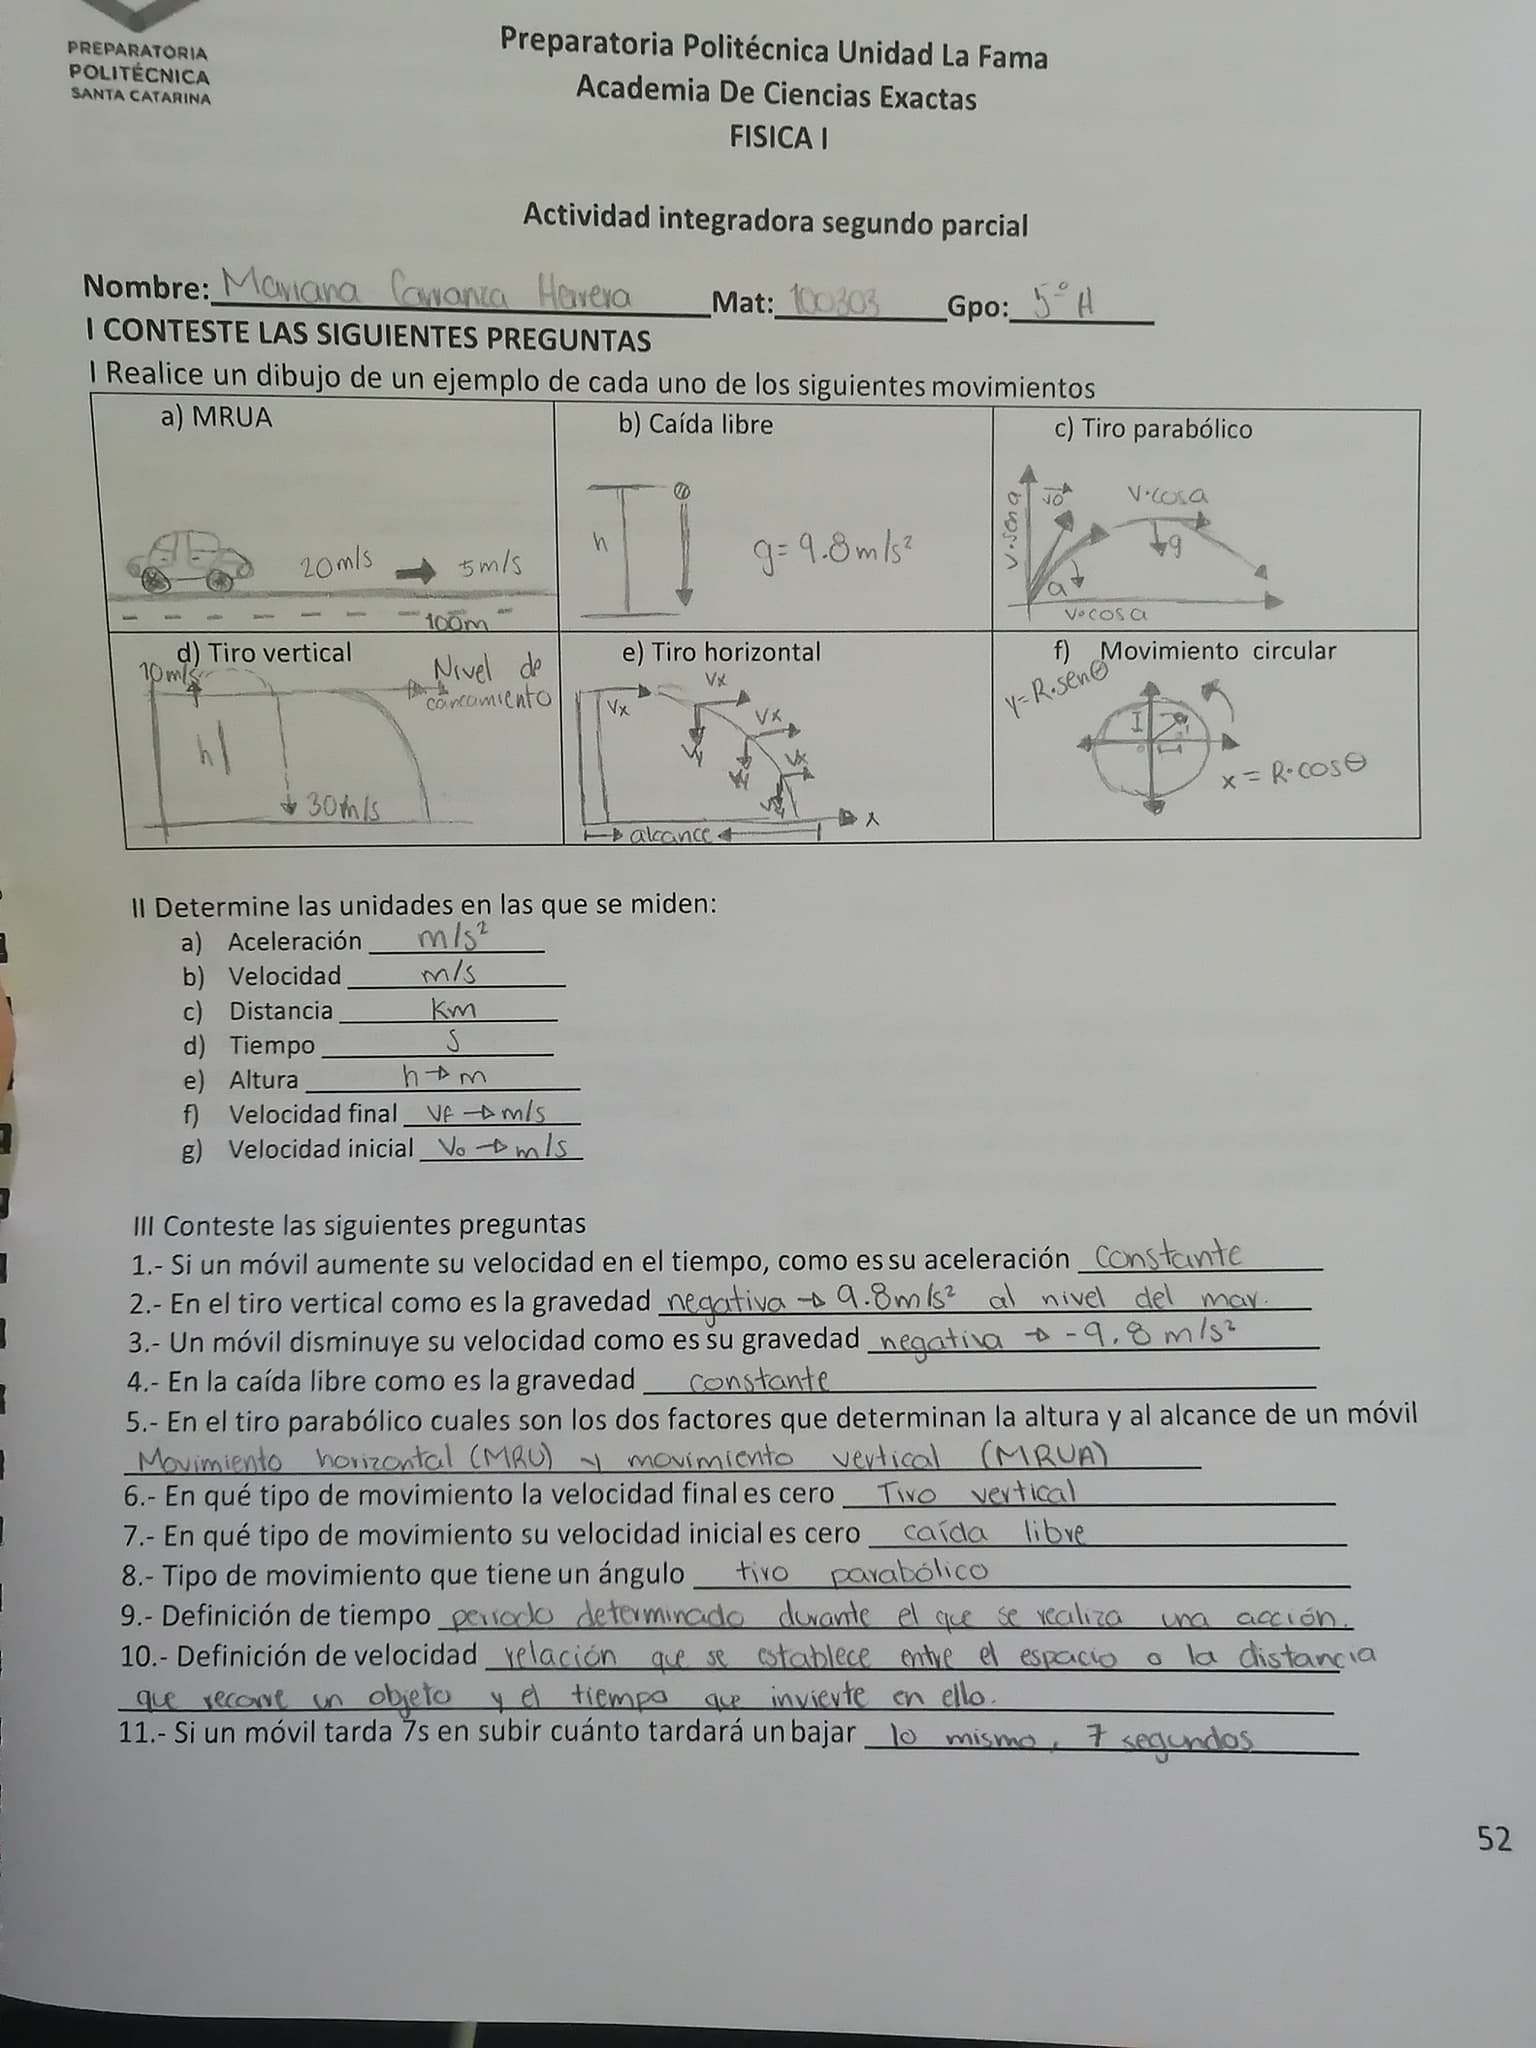 PREPARATORIA
POLITÉCNICA
SANTA CATARINA
Preparatoria Politécnica Unidad La Fama
Academia De Ciencias Exactas
FISICA I
Actividad integradora segundo parcial
Nombre: Mariana Carranza Herrera Mat: 100303 Gpo: 5° H
I CONTESTE LAS SIGUIENTES PREGUNTAS
I Realice un dibujo de un ejemplo de cada uno de los siguientes movimientos
a) MRUA
20m/s → 5m/s
100m
b) Caída libre
h
g= 9.8m/s²
c) Tiro parabólico
V·sen a
Vo
V·cosa
g
a
V·cosa
d) Tiro vertical
10m/s
Nivel de
h
30m/s
e) Tiro horizontal
Vx
Vx
Vx
Vx
Vy
Vy
Vy
alcance
x
f) Movimiento circular
y=R·senθ
x = R·cosθ
II Determine las unidades en las que se miden:
a) Aceleración m/s²
b) Velocidad m/s
c) Distancia Km
d) Tiempo s
e) Altura h→m
f) Velocidad final Vf→m/s
g) Velocidad inicial Vo→m/s
III Conteste las siguientes preguntas
1.- Si un móvil aumente su velocidad en el tiempo, como es su aceleración constante
2.- En el tiro vertical como es la gravedad negativa → 9.8m/s² al nivel del mar.
3.- Un móvil disminuye su velocidad como es su gravedad negativa → -9.8 m/s²
4.- En la caída libre como es la gravedad constante
5.- En el tiro parabólico cuales son los dos factores que determinan la altura y al alcance de un móvil
Movimiento horizontal (MRU) y movimiento vertical (MRUA)
6.- En qué tipo de movimiento la velocidad final es cero Tiro vertical
7.- En qué tipo de movimiento su velocidad inicial es cero caída libre
8.- Tipo de movimiento que tiene un ángulo tiro parabólico
9.- Definición de tiempo periodo determinado durante el que se realiza una acción.
10.- Definición de velocidad relación que se establece entre el espacio o la distancia
que recorre un objeto y el tiempo que invierte en ello.
11.- Si un móvil tarda 7s en subir cuánto tardará un bajar lo mismo, 7 segundos
52